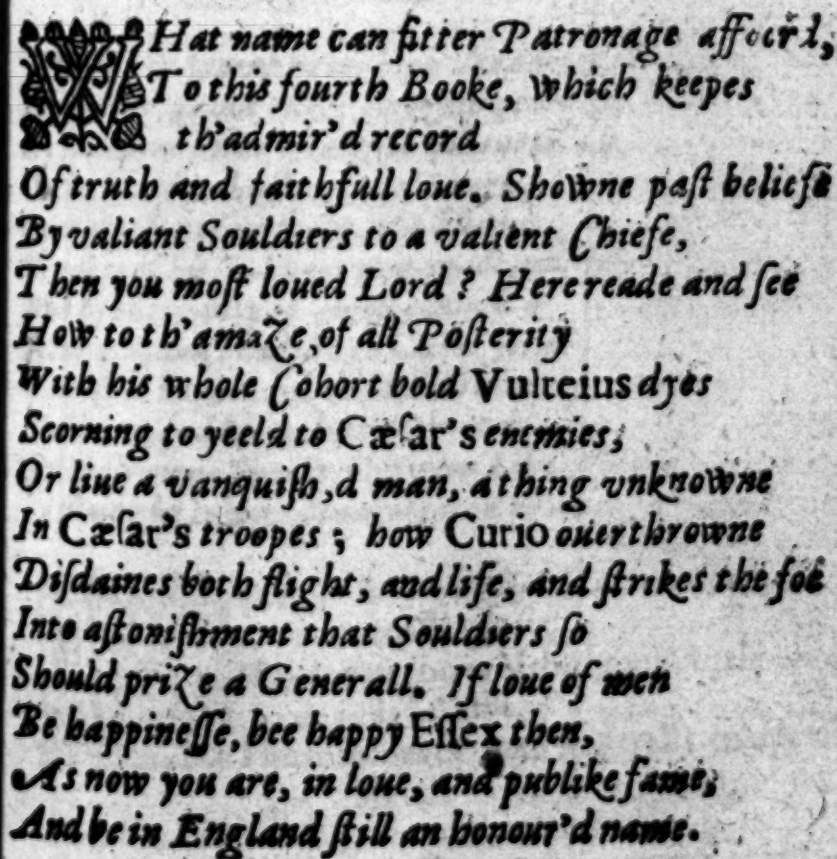 WHat name can fitter Patronage affoord,
To this fourth Booke, which keepes
th'admir'd record
Of truth and faithfull loue. Showne paſt beliefe
By valiant Souldiers to a valient Chiefe,
Then you moſt loued Lord? Here reade and ſee
How to th'amaZe, of all Poſterity
With his whole Cohort bold Vulteius dyes
Scorning to yeeld to Cæſar's enemies;
Or liue a vanquiſh,d man, a thing vnknowne
In Cæſar's troopes; how Curio ouerthrowne
Diſdaines both flight, and life, and ſtrikes the foe
Into aſtoniſhment that Souldiers ſo
Should priZe a Generall. If loue of men
Be happineſſe, bee happy Eſſex then,
As now you are, in loue, and publike fame;
And be in England ſtill an honour'd name.